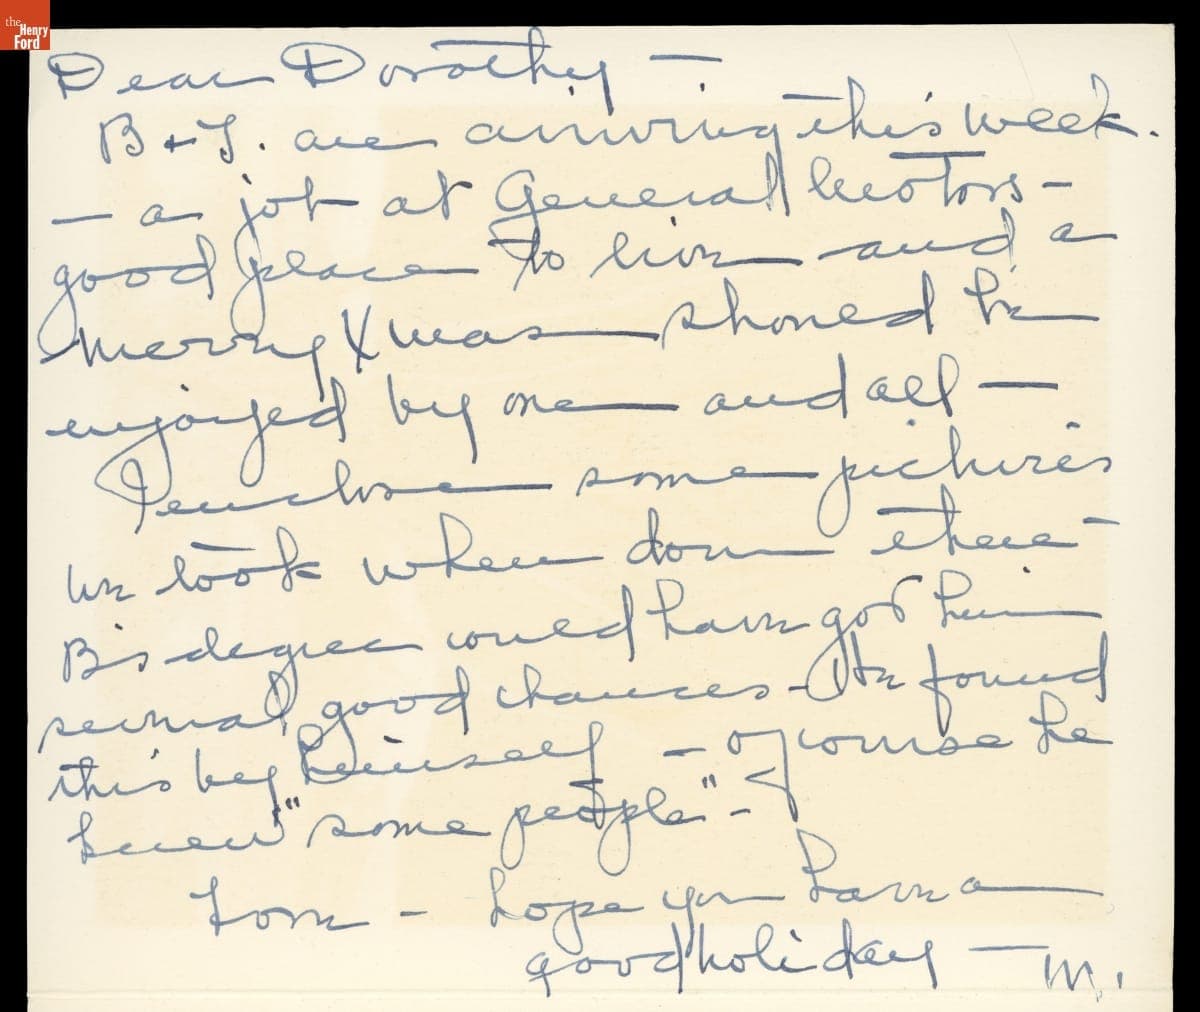 the
Henry
Ford
Dear Dorothy —
B + J. are arriving this week.
— a job at General Motors —
good place to live and a
merry Xmas should be
enjoyed by one and all —
I enclose some pictures
we took when down there —
B's degree could have got him
several good chances — He found
this by himself — of course he
knew "some people" —
Love — hope you have a
good holiday — M.